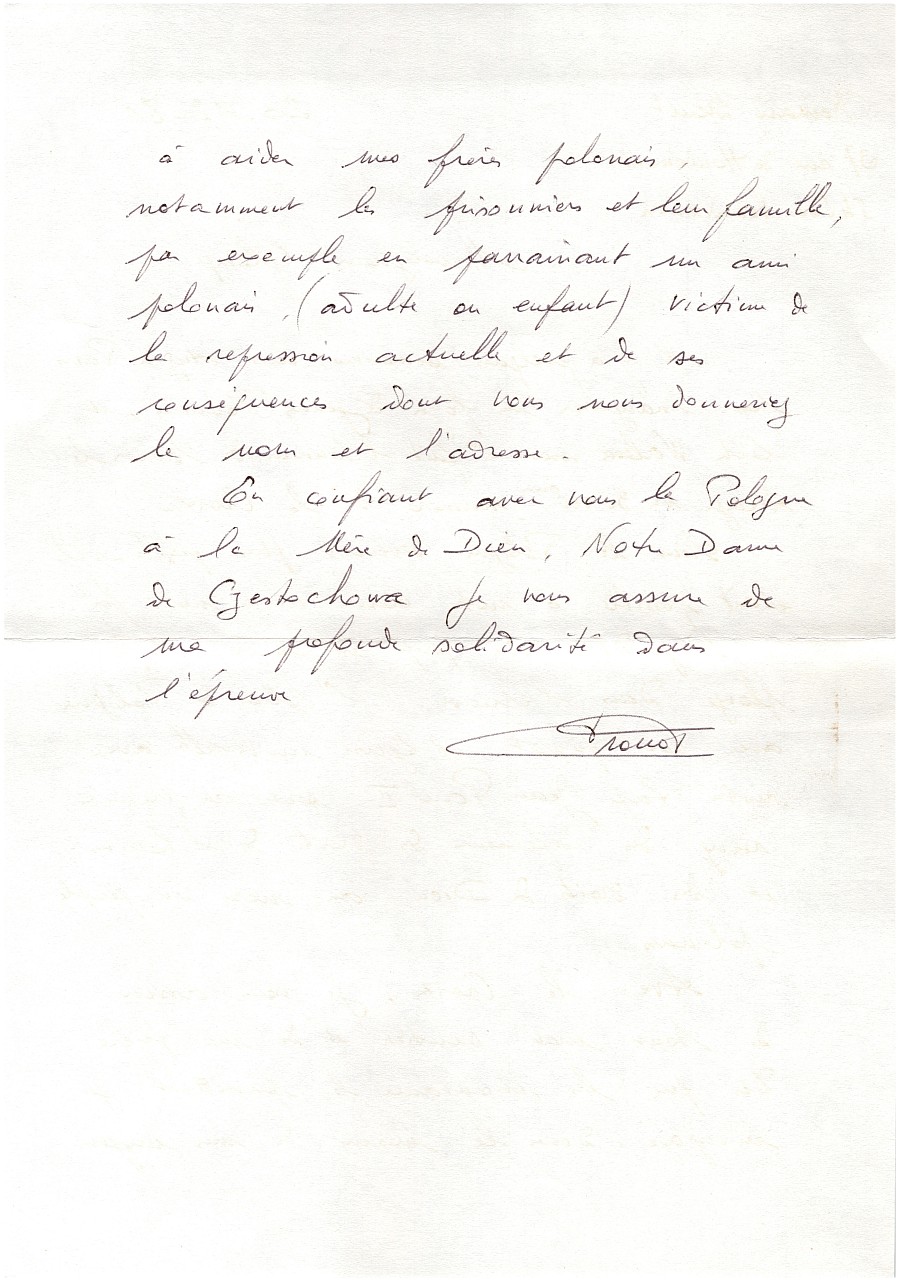 à aider mes frères polonais,
notamment les prisonniers et leur famille,
par exemple en parrainant un ami
polonais, (adulte ou enfant) victime de
la repression actuelle et de ses
conséquences dont vous nous donneriez
le nom et l'adresse.
En confiant avec vous la Pologne
à la Mère de Dieu, Notre Dame
de Czestochowa je vous assure de
ma profonde solidarité dans
l'épreuve